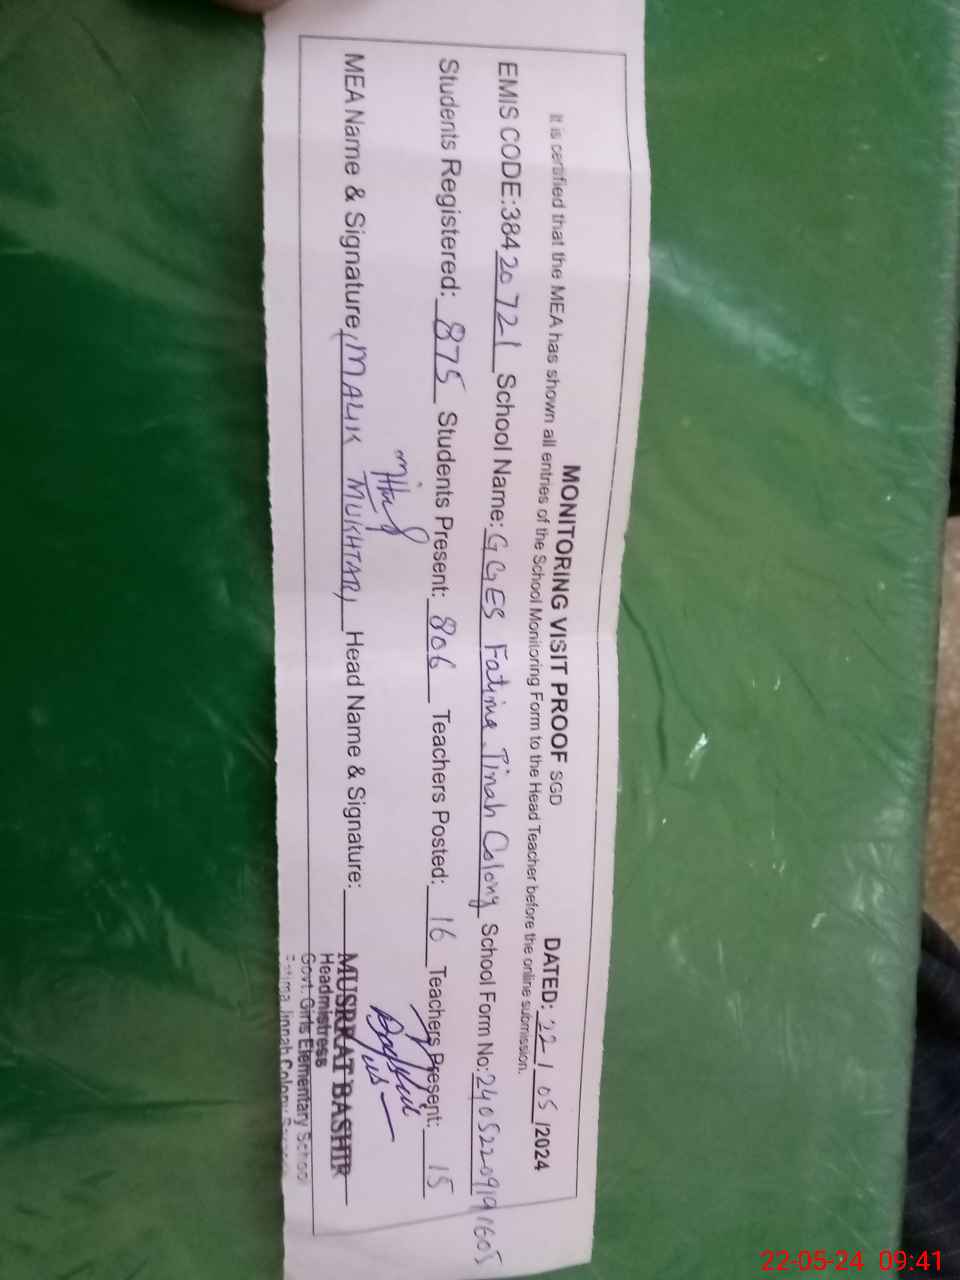 MONITORING VISIT PROOF SGD DATED: 22/05/2024
It is certified that the MEA has shown all entries of the School Monitoring Form to the Head Teacher before the online submission.
EMIS CODE:38420721 School Name: GGES Fatima Jinah Colony School Form No:240522091605
Students Registered: 875 Students Present: 806 Teachers Posted: 16 Teachers Present: 15
MEA Name & Signature (MALIK MUKHTAR) Head Name & Signature:
MUSRRAT BASHIR
Headmistress
Govt. Girls Elementary School
Fatima Jinnah Colony
22-05-24 09:41